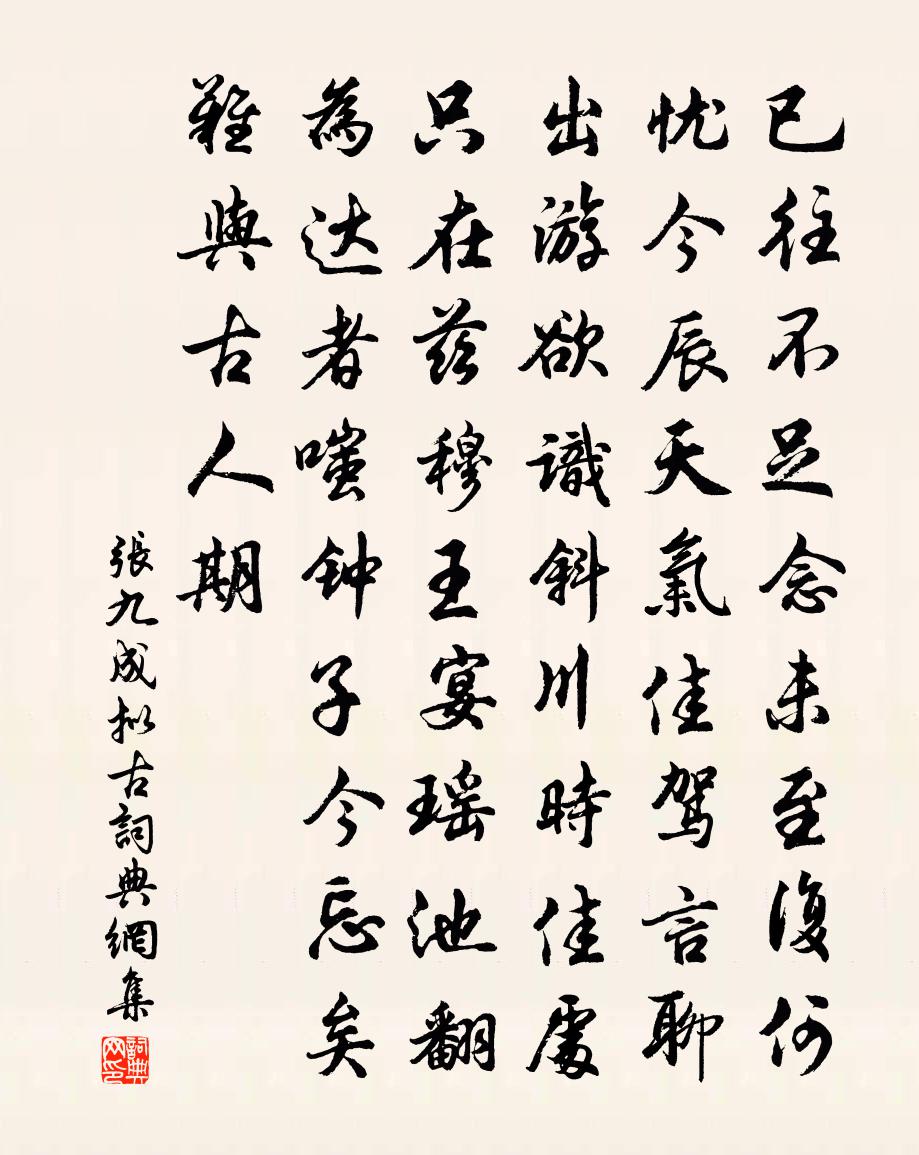 已往不足念未至復何
忧今辰天氣佳駕言聊
出游欲識斜川時佳處
只在兹穆王宴瑶池翻
為达者嗤钟子今忘矣
難與古人期
張九成拟古詞典網集
詞典网印